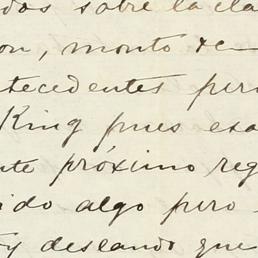 dos sobre la cla
on, monto &c
tecedentes per
King pues esa
nte próximo reg
ido algo pero
y deseando que